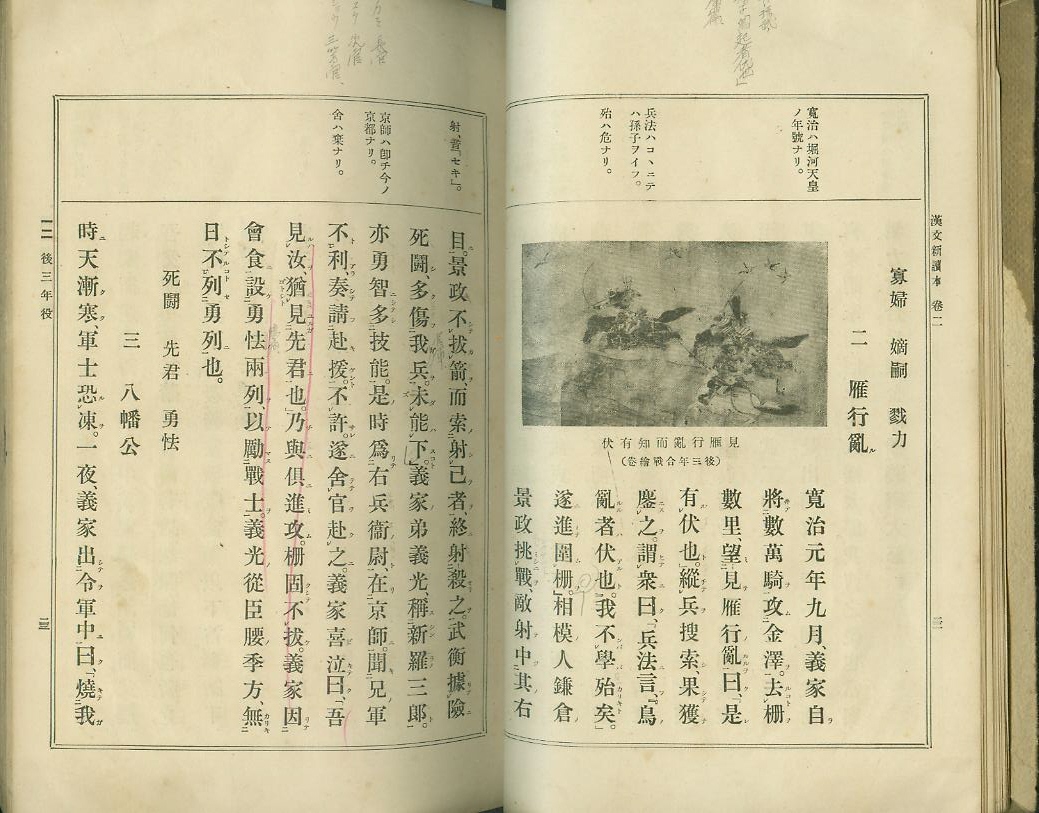 漢文新讀本 卷二
寡婦 嫡嗣 戮力
二 雁行亂ル
寬治ハ堀河天皇
ノ年號ナリ。
兵法ハコヽニテ
ハ孫子ヲイフ。
殆ハ危ナリ。
見雁行亂而知有伏
(後三年合戰繪卷)
寬治元年九月、義家自
將數萬騎攻金澤。去柵
數里、望見雁行亂曰、「是
有伏也。」縱兵搜索果獲
鏖之。謂衆曰、「兵法言、『鳥
亂者伏也。』我不學殆矣。」
遂進圍柵。相模人鎌倉
景政挑戰、敵射中其右
射、音「セキ」。
京師ハ卽チ今ノ
京都ナリ。
舍ハ棄ナリ。
目。景政不拔箭、而索射己者、終射殺之。武衡據險
死鬪、多傷我兵。未能下。義家弟義光、稱新羅三郎。
亦勇智多技能。是時爲右兵衞尉、在京師。聞兄軍
不利、奏請赴援。不許。遂舍官赴之。義家喜泣曰、「吾
見汝、猶見先君也。」乃與俱進攻。柵固不拔。義家因
會食設勇怯兩列、以勵戰士。義光從臣腰季方、無
日不列勇列也。
死鬪 先君 勇怯
三 八幡公
時天漸寒、軍士恐凍。一夜、義家出令軍中曰、「燒我
後三年役